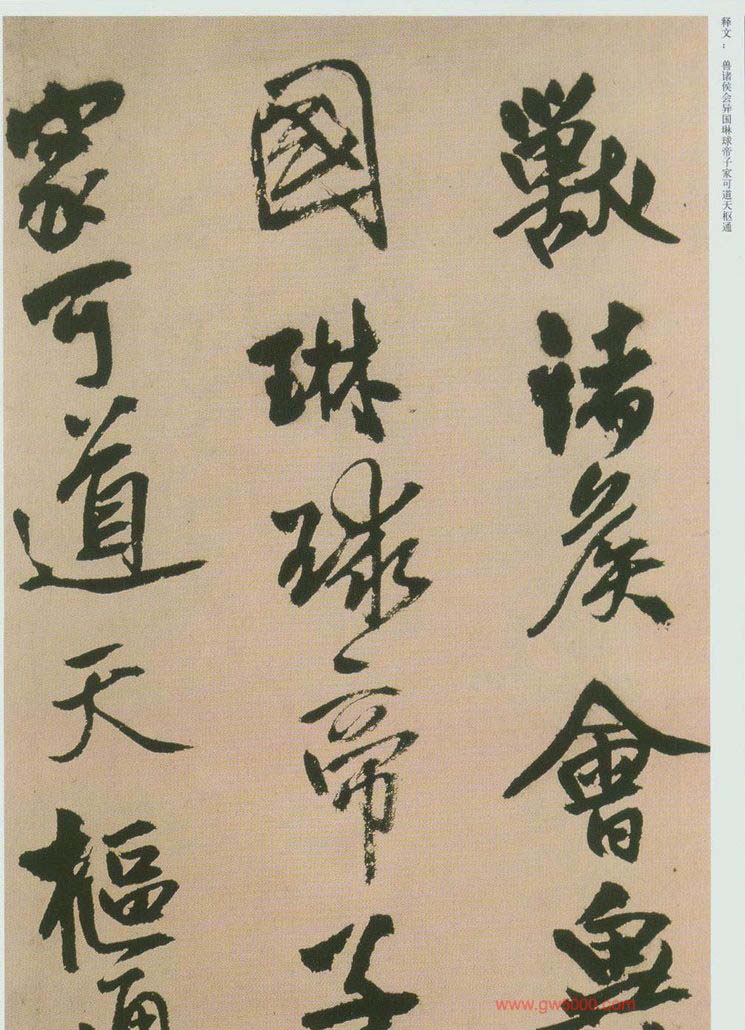 释文： 兽诸侯会异国琳球帝子家可道天枢通
獸諸侯會異
國琳球帝子
家可道天樞通
www.gw5000.com